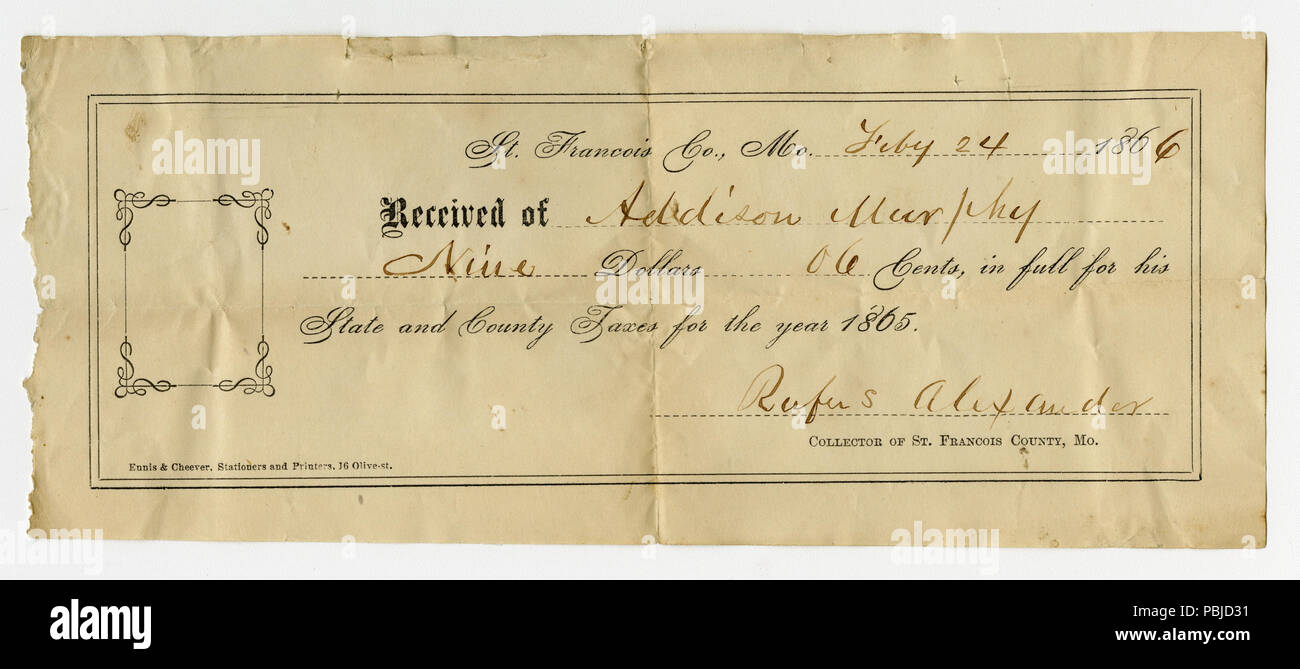 St. Francois Co., Mo. Feby 24 1866
Received of Addison Murphy
Nine Dollars 06 Cents, in full for his
State and County Taxes for the year 1865.
Rufus Alexander
COLLECTOR OF ST. FRANCOIS COUNTY, MO.
Ennis & Cheever, Stationers and Printers, 16 Olive-st.
alamy
alamy
Image ID: PBJD31
www.alamy.com